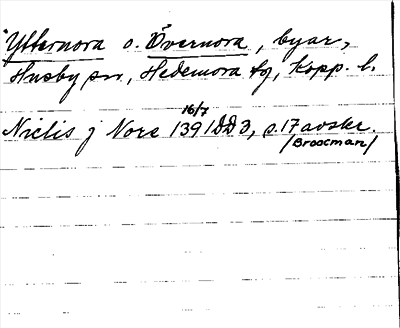 Ytternora o. Övernora, byar,
Husby sn., Hedemora tg, Kopp. l.
16/7
Niclis j Nore 1391 DD 3, s. 17 avskr.
/Broocman/